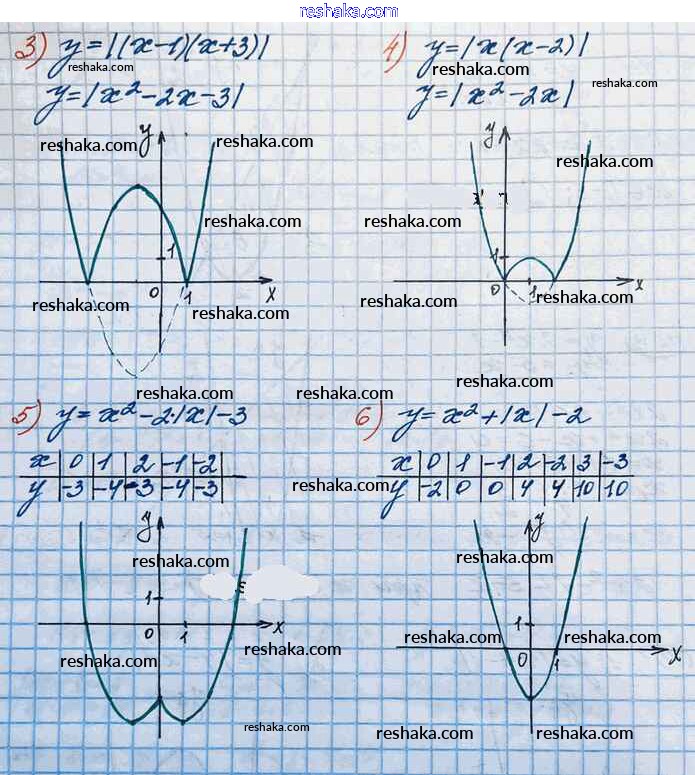 reshaka.com
3) y=|(x-1)(x+3)|
reshaka.com
y=|x²-2x-3|
4) y=|x(x-2)|
reshaka.com
reshaka.com
y=|x²-2x|
reshaka.com
y
reshaka.com
1
0
1
x
reshaka.com
reshaka.com
reshaka.com
y
reshaka.com
reshaka.com
1
0
1
x
reshaka.com
reshaka.com
reshaka.com
reshaka.com
5) y=x²-2·|x|-3
x | 0 | 1 | 2 | -1 | -2
y | -3 | -4 | -3 | -4 | -3
reshaka.com
6) y=x²+|x|-2
x | 0 | 1 | -1 | 2 | -2 | 3 | -3
y | -2 | 0 | 0 | 4 | 4 | 10 | 10
reshaka.com
y
reshaka.com
1
0
1
x
reshaka.com
reshaka.com
reshaka.com
y
reshaka.com
1
reshaka.com
0
1
x
reshaka.com
reshaka.com
reshaka.com